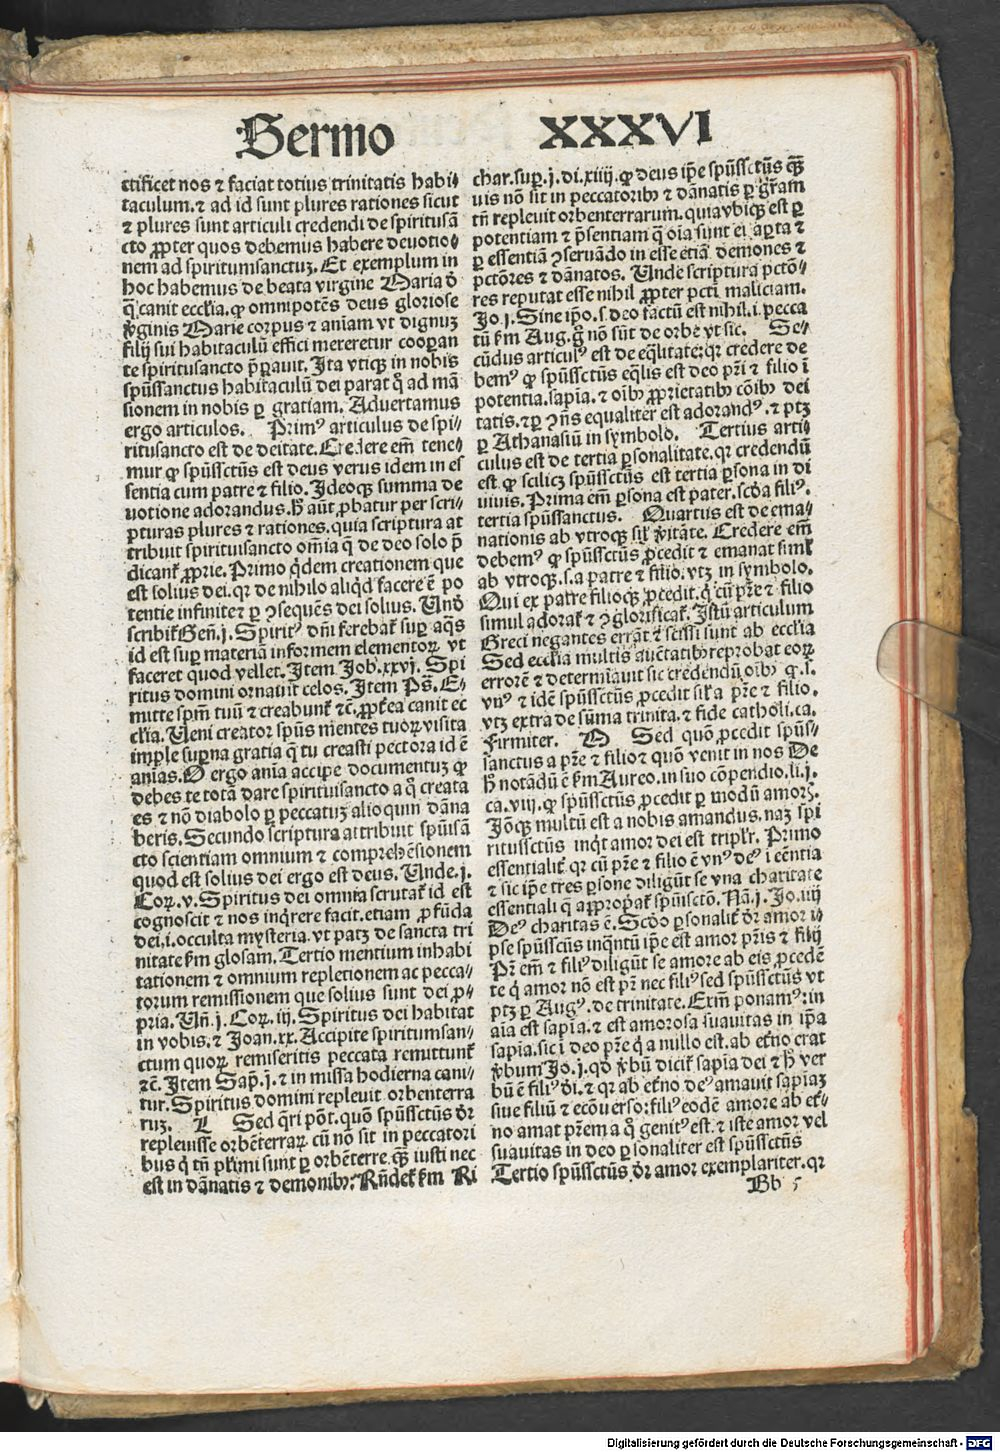 Sermo XXXVI
ctificet nos ⁊ faciat totius trinitatis habi⸗
taculum. ⁊ ad id sunt plures rationes sicut
⁊ plures sunt articuli credendi de spiritusã
cto ꝓpter quos debemus habere deuotio⸗
nem ad spiritumsanctuꝫ. Et exemplum in
hoc habemus de beata virgine Maria ð
q̃ canit eccľia. ꝙ omnipotẽs deus gloriose
v̾ginis Marie corpus ⁊ aniam vt dignuꝫ
filij sui habitaculũ effici mereretur cooꝑan
te spiritusancto p̃ꝑauit. Ita vtiqꝫ in nobis
spũssanctus habitaculũ dei parat q̊ ad mã
sionem in nobis ꝑ gratiam. Aduertamus
ergo articulos. Primꝰ articulus de spi⸗
ritusancto est de deitate. Credere em̃ tene⸗
mur ꝙ spũssctũs est deus verus idem in es
sentia cum patre ⁊ filio. Ideoqꝫ summa de
uotione adorandus. h̃ aũt ꝓbatur per scri⸗
pturas plures ⁊ rationes. quia scriptura at
tribuit spirituisancto om̃ia q̃ de deo solo p̃
dicant᷑ ꝓprie. Primo q̇dem creationem que
est solius dei. qꝛ de nihilo aliqd facere ẽ po
tentie infinite ⁊ ꝑ ꝯsequẽs dei solius. Vnð
scribit᷑ Geñ. j. Spiritꝰ dñi ferebat᷑ suꝑ aq̃s
id est suꝑ materiã informem elementoꝝ vt
faceret quod vellet. Item Job. xxvj. Spi
ritus domini ornauit celos. Item Ps̃. E⸗
mitte spm̃ tuũ ⁊ creabunt᷑ ⁊c̃. ꝓpt᷑ea canit ec
cľia. Ueni creator spũs mentes tuoꝝ visita
imple suꝑna gratia q̃ tu creasti pectora id ẽ
anĩas. O ergo anĩa accipe documentuꝫ ꝙ
debes te totã dare spirituisancto a q̊ creata
es ⁊ nõ diabolo ꝑ peccatuꝫ alioquin dãna
beris. Secundo scriptura attribuit spũisã
cto scientiam omnium ⁊ comprehẽsionem
quod est solius dei ergo est deus. Vnde. j.
Coꝝ. v. Spiritus dei omnia scrutat᷑ id est
cognoscit ⁊ nos inq̇rere facit. etiam ꝓfũda
dei. i. occulta mysteria. vt patꝫ de sancta tri
nitate ẜm glosam. Tertio mentium inhabi
tationem ⁊ omnium repletionem ac pecca⸗
torum remissionem que solius sunt dei ꝓ⸗
pria. Vñ. j. Coꝝ. iij. Spiritus dei habitat
in vobis. ⁊ Joan. xx. Accipite spiritumsan⸗
ctum quoꝝ remiseritis peccata remittunt᷑
⁊c̃. Item Sap̃. j. ⁊ in missa hodierna cani⸗
tur. Spiritus domini repleuit orbenterra
ruꝫ. L Sed q̃ri põt. quõ spũssctũs ð̃r
repleuisse orbẽterraꝝ cũ nõ sit in peccatori
bus q̇ tñ pľimi sunt ꝑ orbẽterre. qꝫ̃ iusti nec
est in dãnatis ⁊ demonibꝰ. Rñdet᷑ ẜm Ri
char. suꝑ. j. di. xiiij. ꝙ deus ip̃e spũssctũs qꝫ̃
uis nõ sit in peccatoribꝰ ⁊ dãnatis ꝑ gr̃am
tñ repleuit orbenterrarum. quia vbiqꝫ est ꝑ
potentiam ⁊ p̃sentiam q̃ oĩa sunt ei aꝑta ⁊
ꝑ essentiã ꝯseruãdo in esse etiã demones ⁊
pctõres ⁊ dãnatos. Vnde scriptura pctõ⸗
res reputat esse nihil ꝓpter pcti maliciam.
Jo. j. Sine ip̃o. s. deo factũ est nihil. i. pecca
tũ ẜm Aug. g̊ nõ sũt de orbe vt sic. Se⸗
cũdus articulꝰ est de eq̃litate. qꝛ credere de
bemꝰ ꝙ spũssctũs eq̃lis est deo pr̃i ⁊ filio ĩ
potentia. sapĩa. ⁊ oĩbꝰ ꝓprietatibꝰ cõibꝰ dei
tatis. ⁊ ꝑ ꝯñs equaliter est adorandꝰ. ⁊ ptꝫ
ꝑ Athanasiũ in symbolo. Tertius arti⸗
culus est de tertia ꝑsonalitate. qꝛ credendũ
est. ꝙ scilicꝫ spũssctũs est tertia ꝑsona in di
uinis. Prima em̃ ꝑsona est pater. scða filiꝰ.
tertia spũssanctus. Quartus est de ema⸗
nationis ab vtroqꝫ siľ v̾itate. Credere em̃
debemꝰ ꝙ spũssctũs ꝓcedit ⁊ emanat simľ
ab vtroqꝫ. s. a patre ⁊ filio. vtꝫ in symbolo.
Qui ex patre filioqꝫ ꝓcedit. q̇ cũ pr̃e ⁊ filio
simul adorat᷑ ⁊ ꝯglorificat᷑. Istũ articulum
Greci negantes errãt. ⁊ scissi sunt ab eccľia
Sed eccľia multis auẽtatibꝰ reprobat eoꝝ
errorẽ ⁊ determiauit sic credendũ oĩbꝰ ꝙ. s.
vnꝰ ⁊ idẽ spũssctũs ꝓcedit siľ a pr̃e ⁊ filio.
vtꝫ extra de sũma trinita. ⁊ fide catholi. ca.
Firmiter. M Sed quõ ꝓcedit spũs⸗
sanctus a pr̃e ⁊ filio ⁊ quõ venit in nos De
h̊ notãdũ ẽ ẜm Aureo. in suo cõpendio. li. j.
ca. viij. ꝙ spũssctũs ꝓcedit ꝑ modũ amoris.
Jõqꝫ multũ est a nobis amandus. naꝫ spi
ritussctũs inq̇t amor dei est tripľr. Primo
essentialit᷑. qꝛ cũ pr̃e ⁊ filio ẽ vnꝰ deꝰ ĩ eẽntia
⁊ sic ip̃e tres ꝑsone diligũt se vna charitate
essentiali q̃ approp̃at᷑ spũiscto. Nã. j. Jo. iiij
Deꝰ charitas ẽ. Scðo ꝑsonalit᷑ ð̃r amor i⸗
pse spũssctũs inq̃ntũ ip̃e est amor pr̃is ⁊ filij
Pr̃ em̃ ⁊ filiꝰ diligũt se amore ab eis ꝓcedẽ
te q̇ amor nõ est pr̃ nec filiꝰ sed spũssctũs vt
ptꝫ ꝑ Augꝰ. de trinitate. Exm̃ ponamꝰ: in
aĩa est sapĩa. ⁊ est amorosa suauitas in ip̃a
sapĩa. sic ĩ deo pr̃e q̇ a nullo est. ab et᷑no erat
v̾bum Jo. j. qð v̾bũ dicit᷑ sapĩa dei ⁊ h̊ ver
bũ ẽ filiꝰ ði. ⁊ qꝛ ab et᷑no deꝰ amauit sapĩaꝫ
siue filiũ ⁊ ecõuerso: filiꝰ eodẽ amore ab et᷑⸗
no amat pr̃em a q̊ genitꝰ est. ⁊ iste amor vel
suauitas in deo ꝑsonaliter est spũssctũs
Tertio spũssctũs ð̃r amor exemplariter. qꝛ
Bb 5
Digitalisierung gefördert durch die Deutsche Forschungsgemeinschaft - DFG